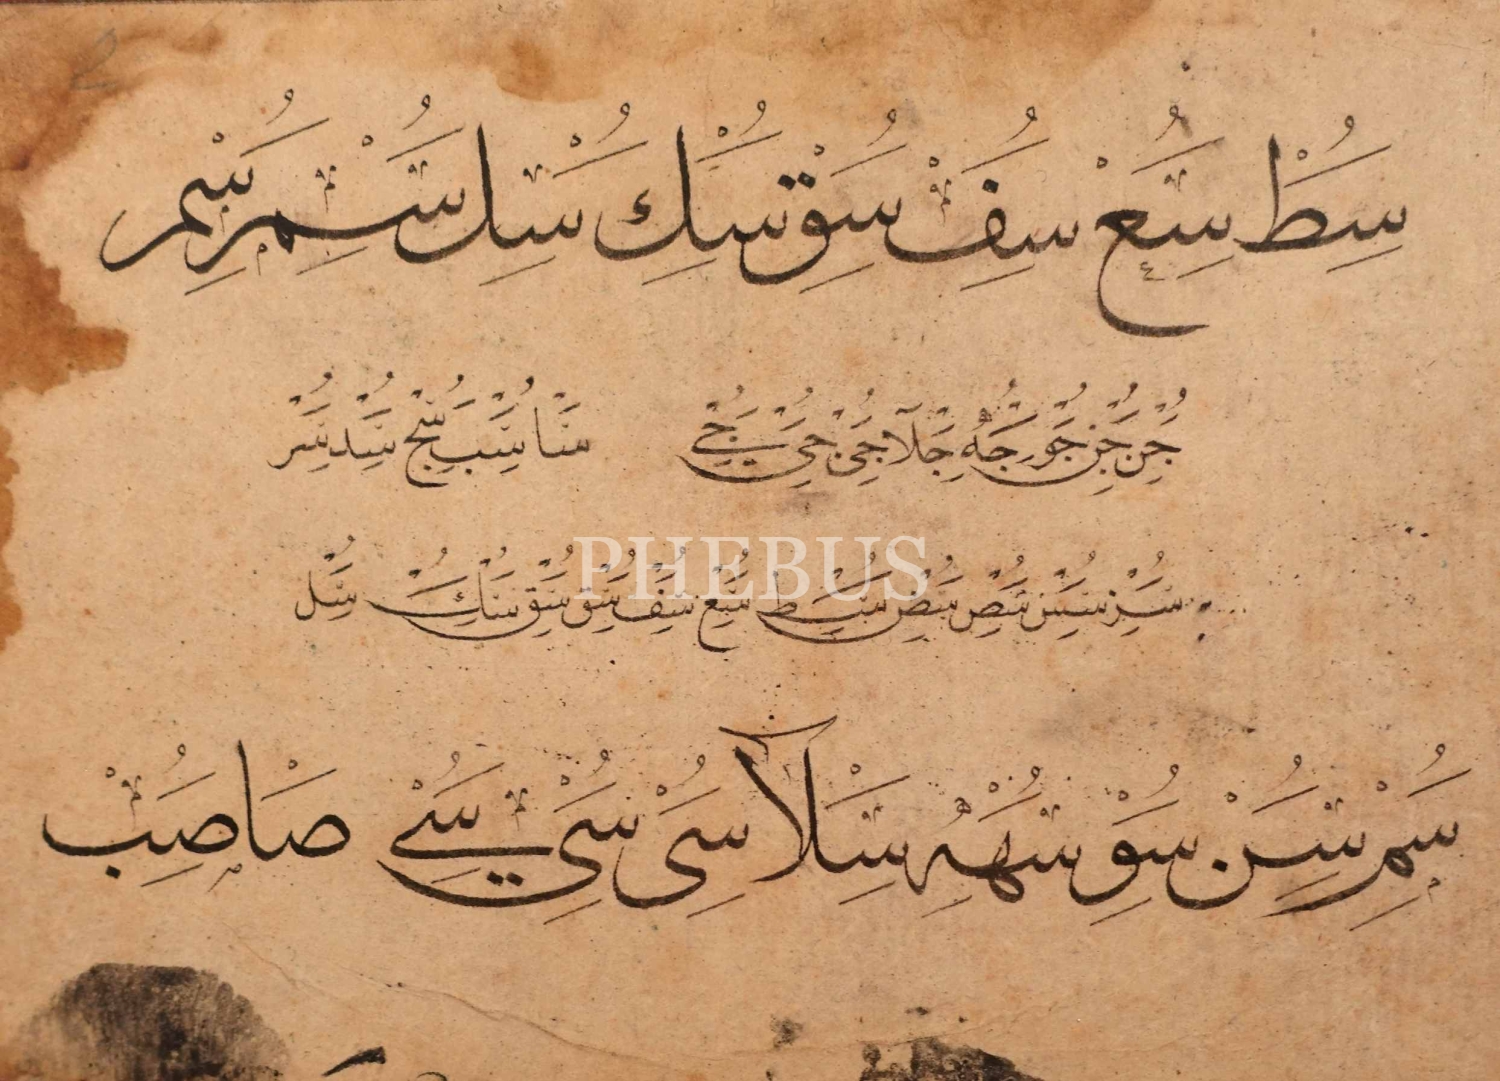 سط سع سف سق سك سل سم سم
جن جن جو جه جلا جى جى جے سا سب سج سد سر
سر سس سص سص سط سع سف سق سق سك سل
PHEBUS
سم سن سو سه سلا سى سى سے صا صب